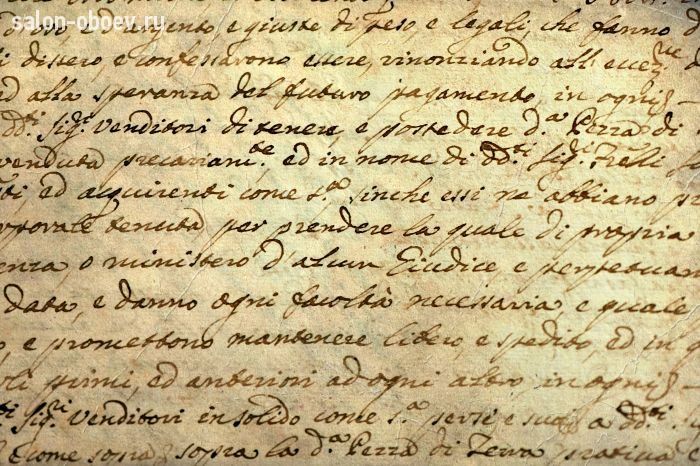 salon-oboev.ru
argento e giuste di peso, e legali, che fanno
dissero, e confessarono essere, rinonziando all' eccez.ne
ed alla speranza del futuro pagamento, in ogni
dd.ti Sig.ri Venditori di tenere, e possedere d.a Pezza di
venduta precariam.te ed in nome di dd.ti Sig.ri Frelli
ed acquirenti come s.a sinche essi ne abbiano
tenuta per prendere la quale di propria
o ministero d'alcun Giudice, e perpetua
data, e danno ogni facoltà necessaria, e quale
e promettono mantenere libero, e spedito, ed in
primi, ed anteriori ad ogni altro in ogni
Sig.ri Venditori in solido come s.a per se e suoi a dd.ti
e come sopra sopra la d.a Pezza di Terra